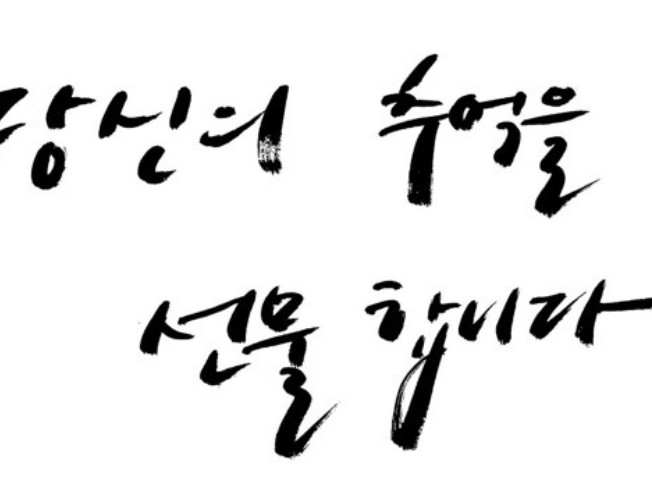 당신의 추억을
선물 합니다